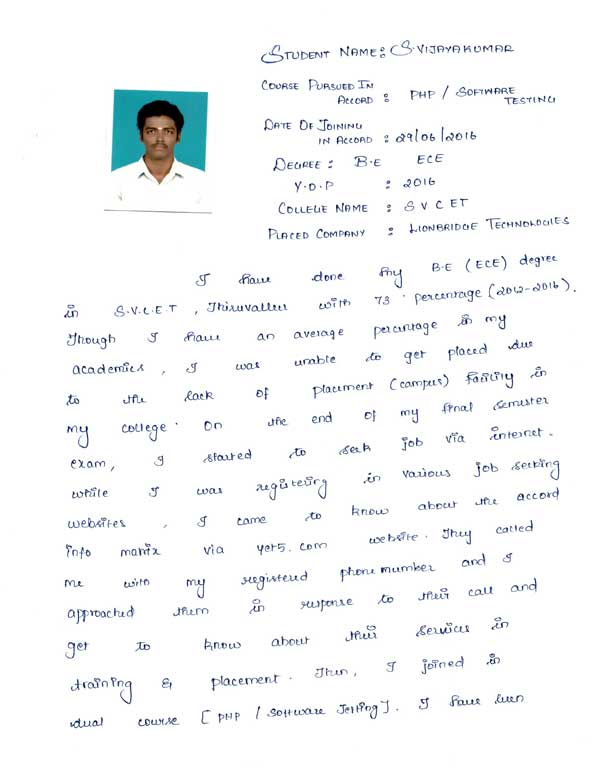 STUDENT NAME: S.VIJAYAKUMAR
COURSE PURSUED IN
ACCORD : PHP / SOFTWARE
TESTING
DATE OF JOINING
IN ACCORD : 29/06/2016
DEGREE : B.E ECE
Y.O.P : 2016
COLLEGE NAME : S V C E T
PLACED COMPANY : LIONBRIDGE TECHNOLOGIES
I have done my B.E (ECE) degree
in S.V.C.E.T , Thiruvallur with 73 percentage (2012-2016).
Though I have an average percentage in my
academics , I was unable to get placed due
to the lack of placement (campus) Facility in
my college. On the end of my final semester
exam, I started to seek job via internet.
While I was registering in various job seeking
websites , I came to know about the accord
info matrix via yet5.com website. They called
me with my registered phone number and I
approached them in response to their call and
get to know about their services in
training & placement. Then, I joined in
dual course [PHP / Software Testing]. I have been